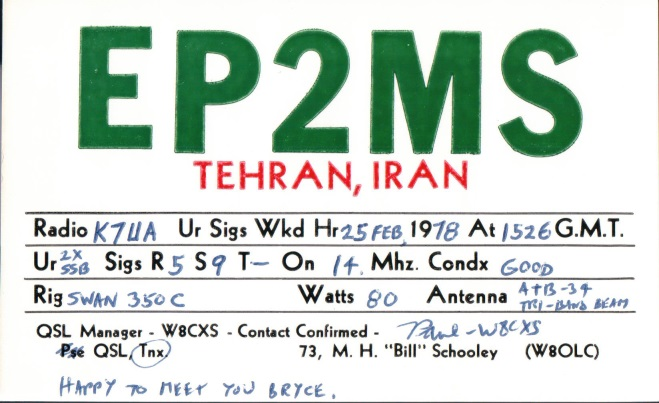 EP2MS
TEHRAN, IRAN
Radio K7UA Ur Sigs Wkd Hr 25 FEB, 1978 At 1526 G.M.T.
Ur 2X SSB Sigs R 5 S 9 T — On 14. Mhz. Condx GOOD
Rig SWAN 350C Watts 80 Antenna ATB-34 TRI-BAND BEAM
QSL Manager - W8CXS - Contact Confirmed - Paul - W8CXS
Pse QSL, Tnx 73, M. H. "Bill" Schooley (W8OLC)
HAPPY TO MEET YOU BRYCE.